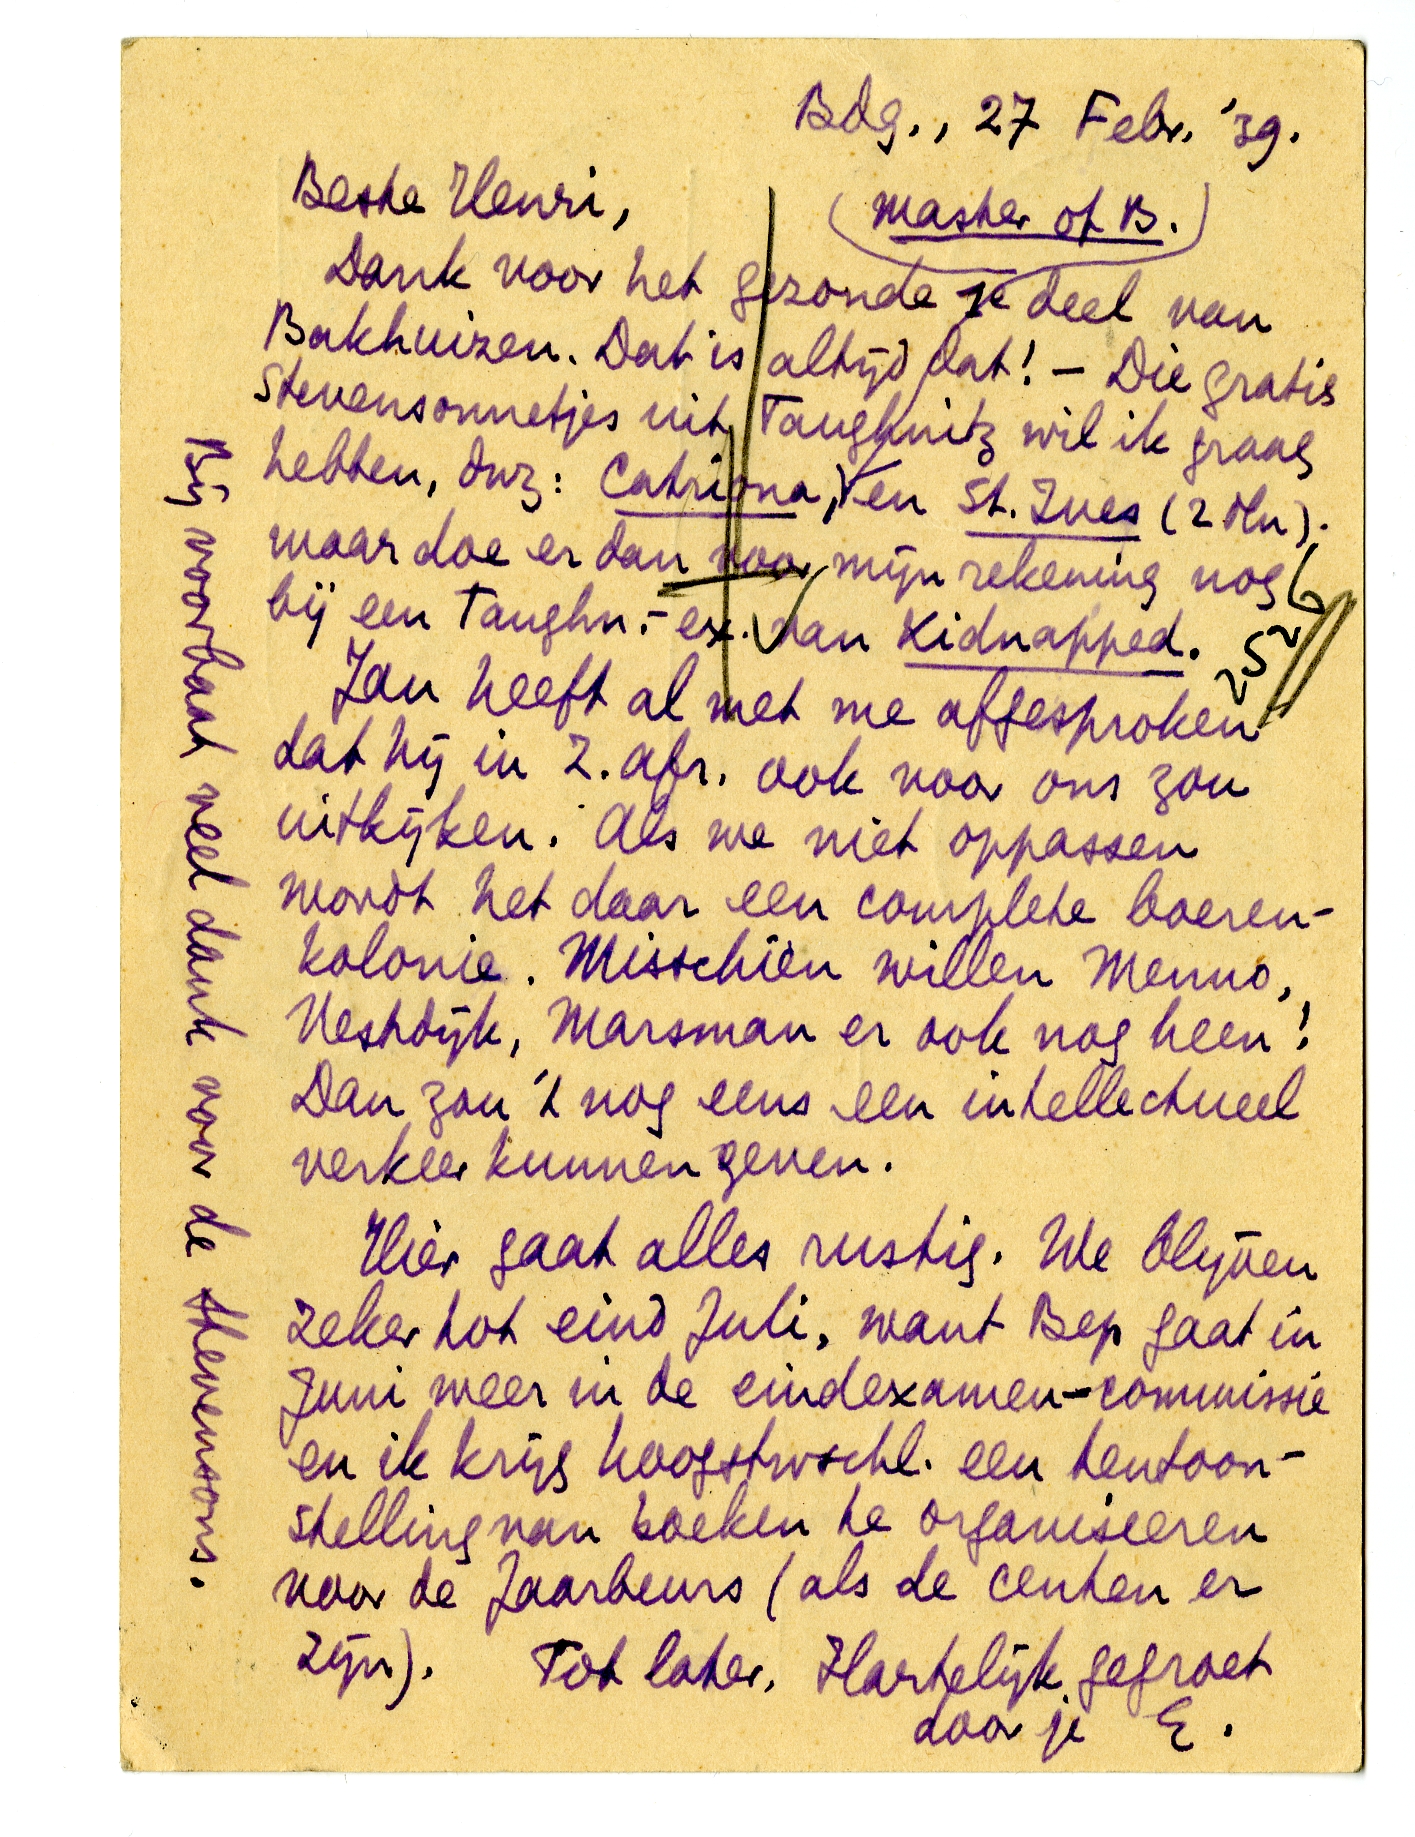 Bdg., 27 Febr. '39.
Beste Henri,
(Master of B.)
Dank voor het gezonde 1e deel van
Bakhuizen. Dat is altijd dat! – Die gratis
Stevensonnetjes uit Tauchnitz wil ik graag
hebben, dwz: Catriona, en St. Ives (2 dln).
maar doe er dan voor mijn rekening nog
bij een Tauchn.-ex. van Kidnapped.
Jan heeft al met me afgesproken
dat hij in Z. Afr. ook voor ons zou
uitkijken. Als we niet oppassen
wordt het daar een complete boeren-
kolonie. Misschien willen Menno,
Vestdijk, Marsman er ook nog heen!
Dan zou 't nog eens een intellectueel
verkeer kunnen geven.
Hier gaat alles rustig. We blijven
zeker tot eind Juli, want Bep gaat in
Juni weer in de eindexamen-commissie
en ik krijg hoogstwschl. een tentoon-
stelling van boeken te organiseeren
voor de Jaarbeurs (als de centen er
zijn). Tot later. Hartelijk gegroet
door je E.
Bij voorbaat veel dank voor de Stevensons.